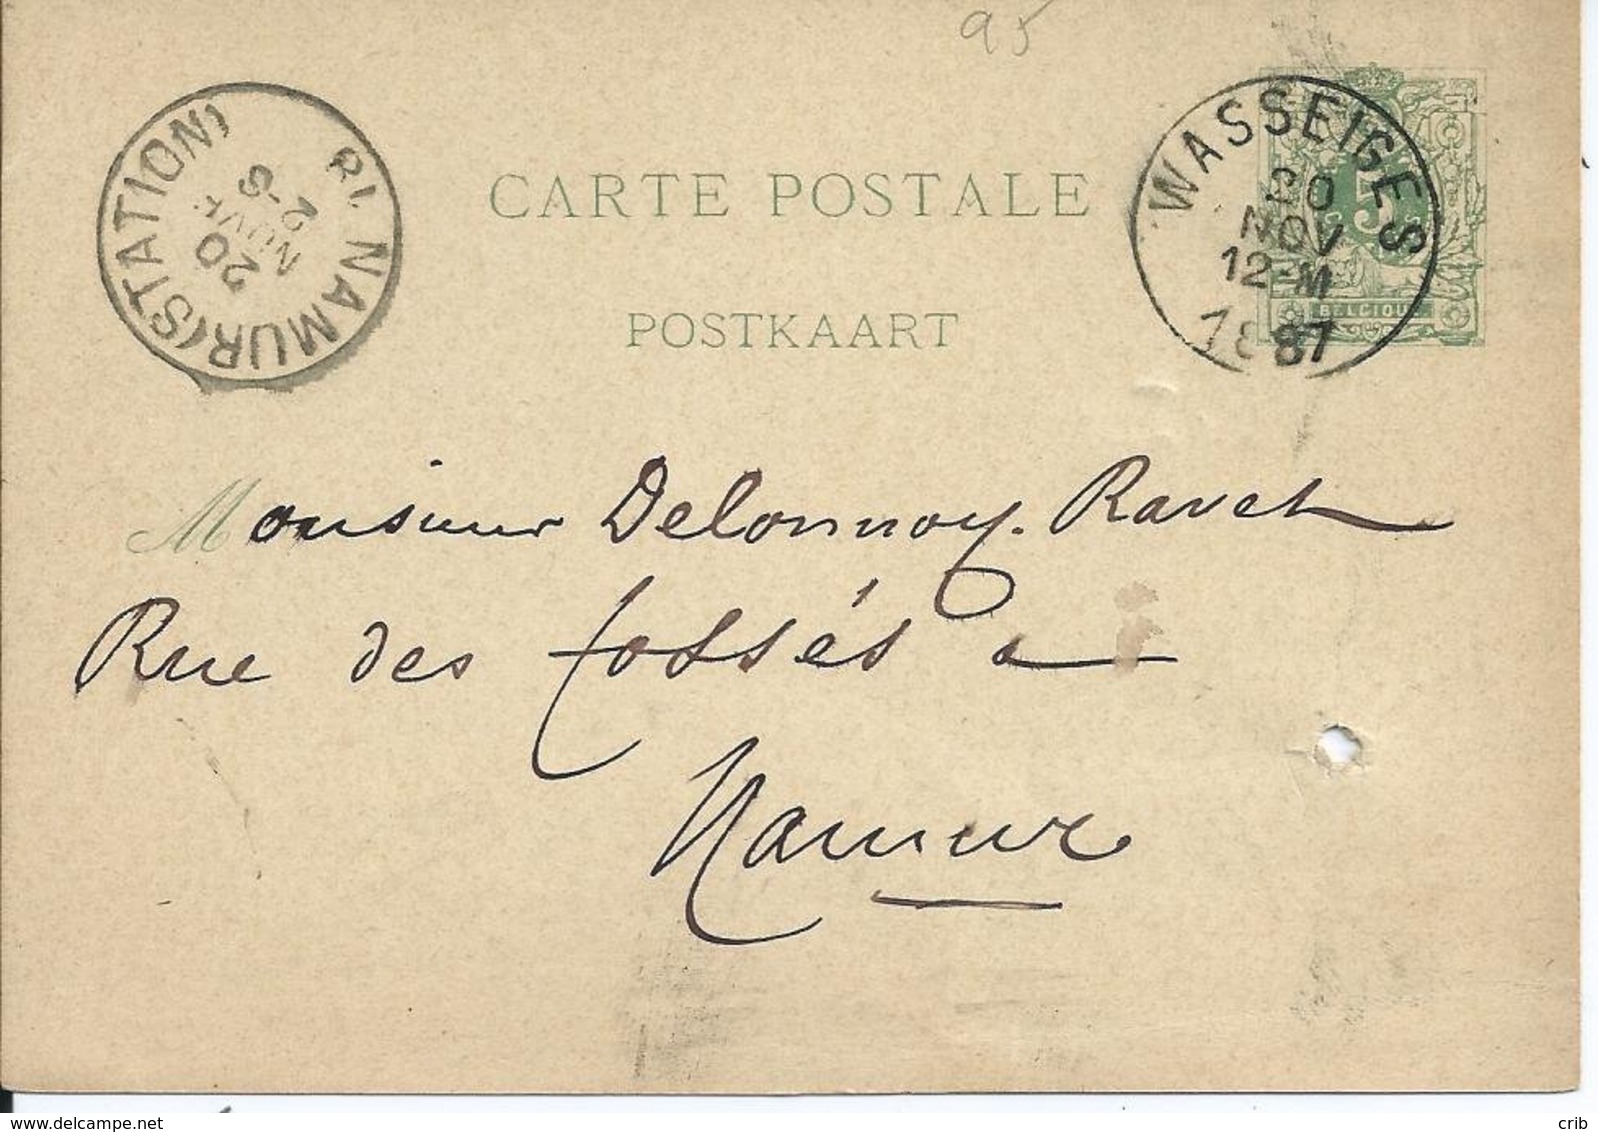 95
CARTE POSTALE
POSTKAART
RI. NAMUR (STATION)
20
NOV
2-S
WASSEIGES
20
NOV
12-M
1887
5
BELGIQUE
Monsieur Delonnoy. Ravet
Rue des Fossés a
Namur
www.delcampe.net
crib